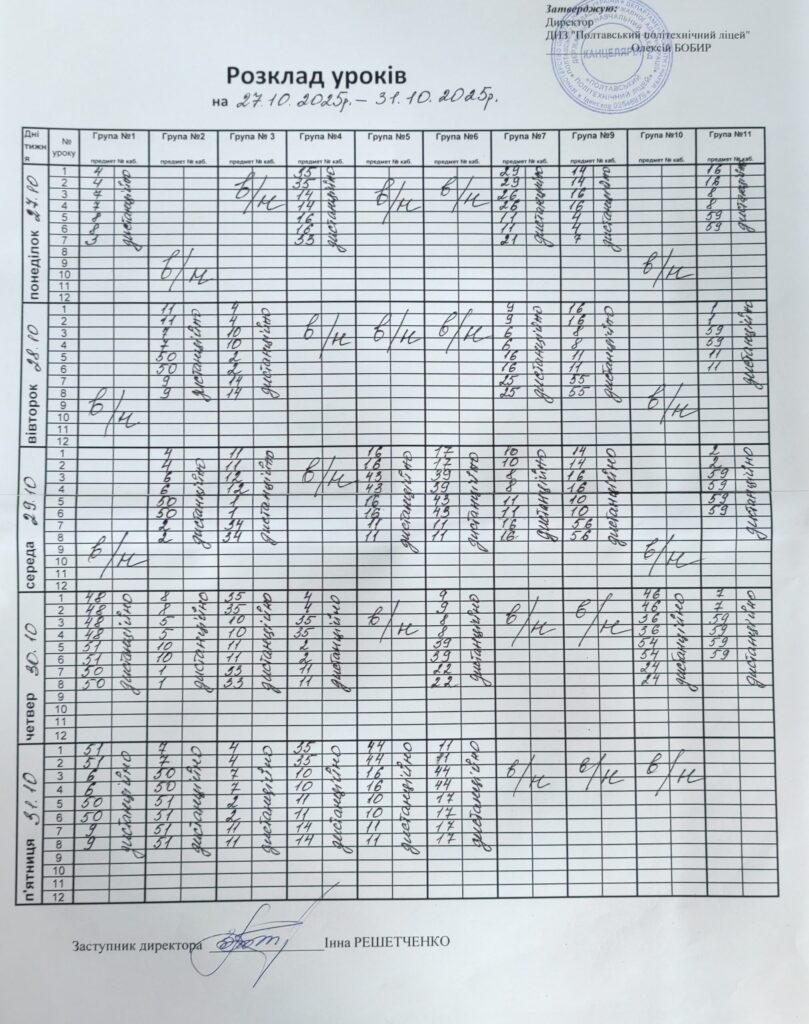 Затверджую:
Директор
ДНЗ "Полтавський політехнічний ліцей"
Олексій БОБИР
КАНЦЕЛЯРІЯ
«ПОЛТАВСЬКИЙ ПОЛІТЕХНІЧНИЙ ЛІЦЕЙ»
Розклад уроків
на 27.10.2025р. – 31.10.2025р.
Дні тижня № уроку Група №1 Група №2 Група № 3 Група №4 Група №5 Група №6 Група №7 Група №9 Група №10 Група №11
предмет № каб. предмет № каб. предмет № каб. предмет № каб. предмет № каб. предмет № каб. предмет № каб. предмет № каб. предмет № каб. предмет № каб.
понеділок 27.10
1 4 35 29 14 16
2 4 35 29 14 16
3 7 14 26 16 8
4 7 14 26 16 8
5 8 16 11 4 59
6 8 16 11 4 59
7 3 33 21 7
8
9
10
11
12
дистанційно в/н в/н дистанційно в/н в/н дистанційно дистанційно в/н дистанційно
вівторок 28.10
1 11 4 9 16 1
2 11 4 9 16 1
3 7 10 6 8 59
4 7 10 6 8 59
5 50 2 16 11 11
6 50 2 16 11 11
7 9 14 25 55
8 9 14 25 55
9
10
11
12
в/н дистанційно дистанційно в/н в/н в/н дистанційно дистанційно в/н дистанційно
середа 29.10
1 4 11 16 17 10 14 2
2 4 11 16 17 10 14 2
3 6 12 43 39 8 16 59
4 6 12 43 39 8 16 59
5 50 1 16 43 11 10 59
6 50 1 16 43 11 10 59
7 2 34 11 11 16 56
8 2 34 11 11 16 56
9
10
11
12
в/н дистанційно дистанційно в/н дистанційно дистанційно дистанційно дистанційно в/н дистанційно
четвер 30.10
1 48 8 35 4 9 46 7
2 48 8 35 4 9 46 7
3 48 5 10 35 8 36 59
4 48 5 10 35 8 36 59
5 51 10 11 2 39 54 59
6 51 10 11 2 39 54 59
7 50 1 33 11 22 24
8 50 1 33 11 22 24
9
10
11
12
дистанційно дистанційно дистанційно дистанційно в/н дистанційно в/н в/н дистанційно дистанційно
п'ятниця 31.10
1 51 7 4 35 44 11
2 51 7 4 35 44 11
3 6 50 7 10 16 44
4 6 50 7 10 16 44
5 50 51 2 11 10 17
6 50 51 2 11 10 17
7 9 51 11 14 11 17
8 9 51 11 14 11 17
9
10
11
12
дистанційно дистанційно дистанційно дистанційно дистанційно дистанційно в/н в/н в/н
Заступник директора Інна РЕШЕТЧЕНКО